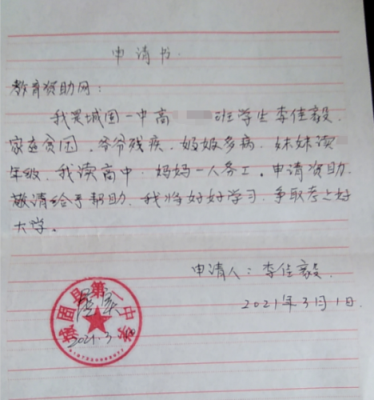 申请书
教育资助网：
我是城固一中高 班学生李佳毅
家庭贫困，爷爷残疾，奶奶多病，妹妹读
年级，我读高中，妈妈一人务工。申请资助，
敬请给予帮助，我将好好学习，争取考上好
大学。
申请人：李佳毅
2021年3月1日
城固县第一中学
2021.3